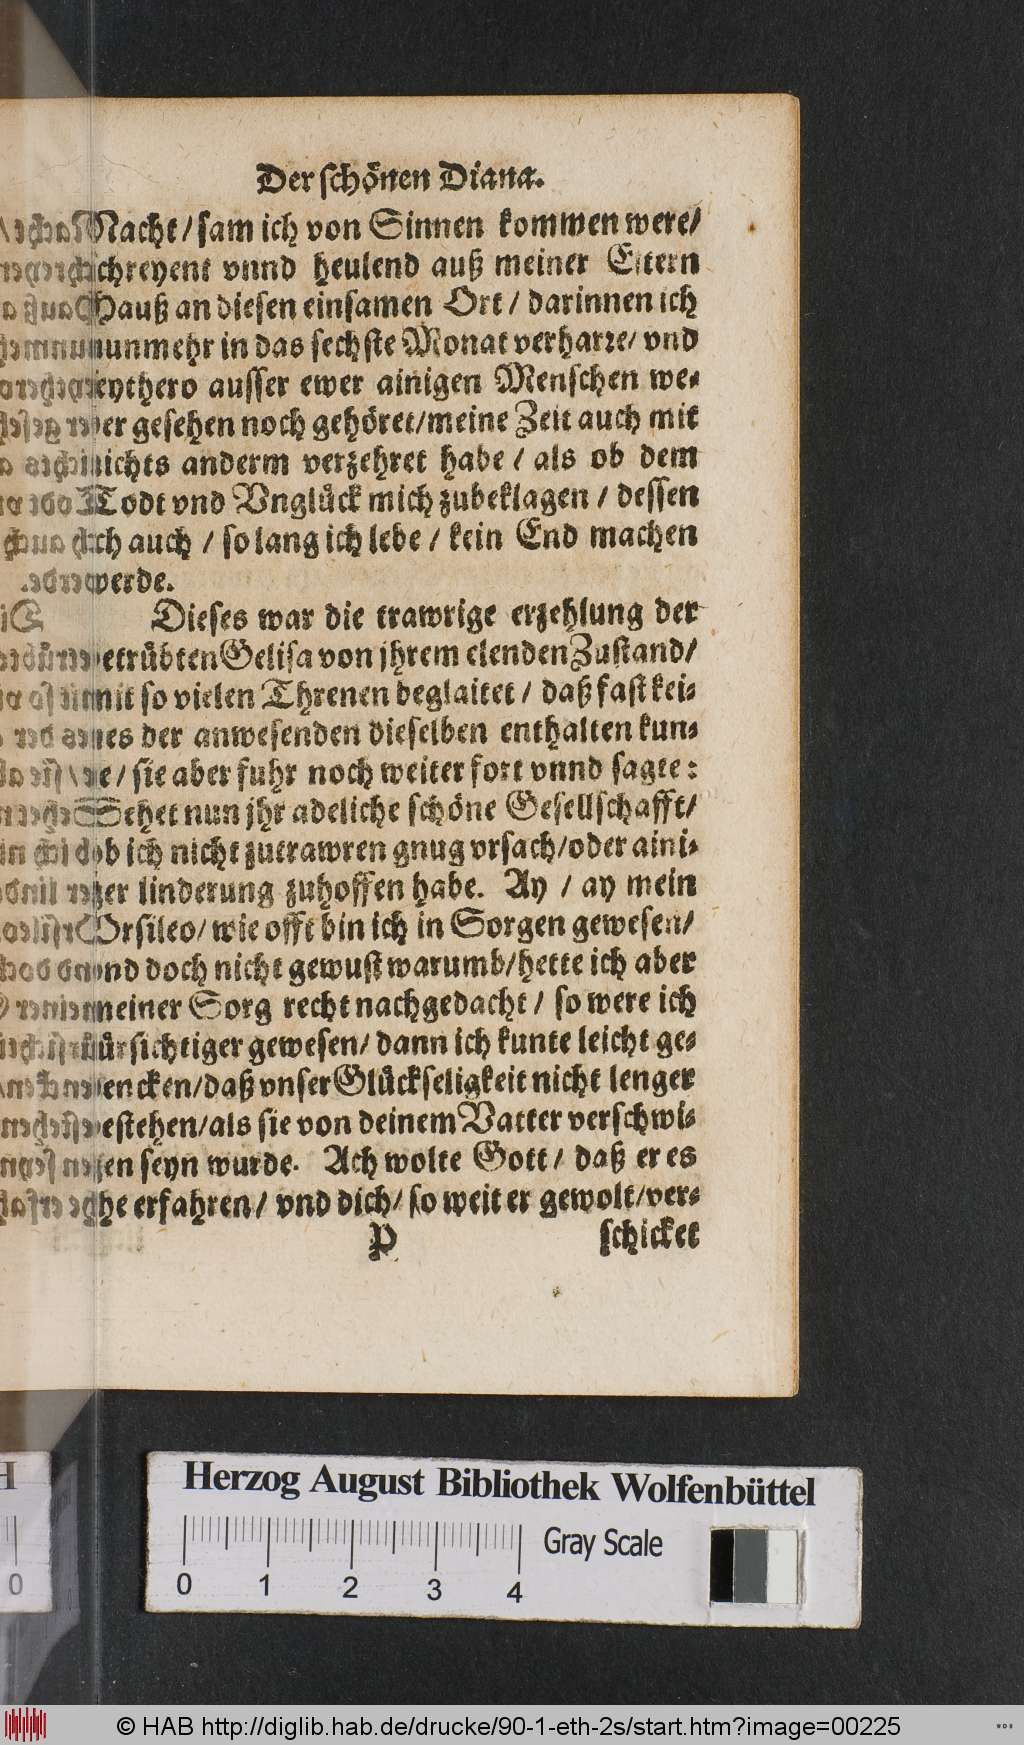 Der schönen Diana.
Nacht / sam ich von Sinnen kommen were /
schreyent vnnd heulend auß meiner Eltern
Hauß an diesen einsamen Ort / darinnen ich
nunmehr in das sechste Monat verharre / vnd
seythero ausser ewer ainigen Menschen we-
der gesehen noch gehöret / meine Zeit auch mit
nichts anderm verzehret habe / als ob dem
Todt vnd Vnglück mich zubeklagen / dessen
ich auch / so lang ich lebe / kein End machen
werde.
Dieses war die trawrige erzehlung der
betrübten Gelisa von jhrem elenden Zustand /
mit so vielen Threnen beglaitet / daß fast kei-
nes der anwesenden dieselben enthalten kun-
te / sie aber fuhr noch weiter fort vnnd sagte:
Sehet nun jhr adeliche schöne Gesellschafft /
ob ich nicht zutrawren gnug vrsach / oder aini-
zer linderung zuhoffen habe. Ay / ay mein
Orsileo / wie offt bin ich in Sorgen gewesen /
vnd doch nicht gewust warumb / hette ich aber
meiner Sorg recht nachgedacht / so were ich
fürsichtiger gewesen / dann ich kunte leicht ge-
dencken / daß vnser Glückseligkeit nicht lenger
bestehen / als sie von deinem Vatter verschwi-
gen seyn wurde. Ach wolte Gott / daß er es
ehe erfahren / vnd dich / so weit er gewolt / ver-
P schicket
Herzog August Bibliothek Wolfenbüttel
Gray Scale
0 1 2 3 4
© HAB http://diglib.hab.de/drucke/90-1-eth-2s/start.htm?image=00225